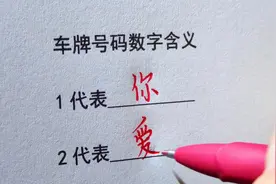 车牌号码数字含义
1代表你
2代表爱